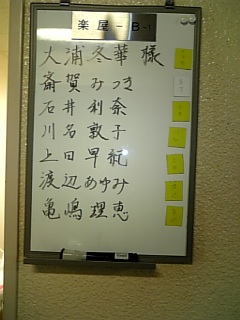 楽屋-B-1
大浦冬華 様
斎賀みつき
石井利奈
川名敦子
上田早紀
渡辺あゆみ
亀嶋理恵